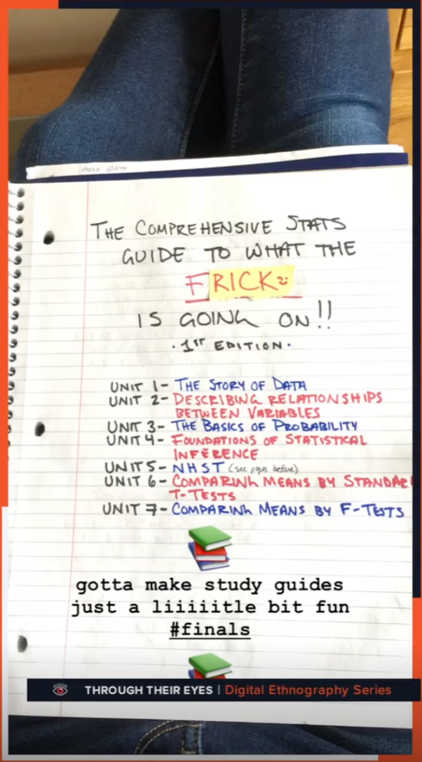 THE COMPREHENSIVE STATS
GUIDE TO WHAT THE
FRICK
IS GOING ON!!
· 1ST EDITION ·
UNIT 1- THE STORY OF DATA
UNIT 2- DESCRIBING RELATIONSHIPS
BETWEEN VARIABLES
UNIT 3- THE BASICS OF PROBABILITY
UNIT 4- FOUNDATIONS OF STATISTICAL
INFERENCE
UNIT 5- NHST (see pages before)
UNIT 6- COMPARING MEANS BY STANDAR
T-TESTS
UNIT 7- COMPARING MEANS BY F-TESTS
gotta make study guides
just a liiiiitle bit fun
#finals
THROUGH THEIR EYES | Digital Ethnography Series